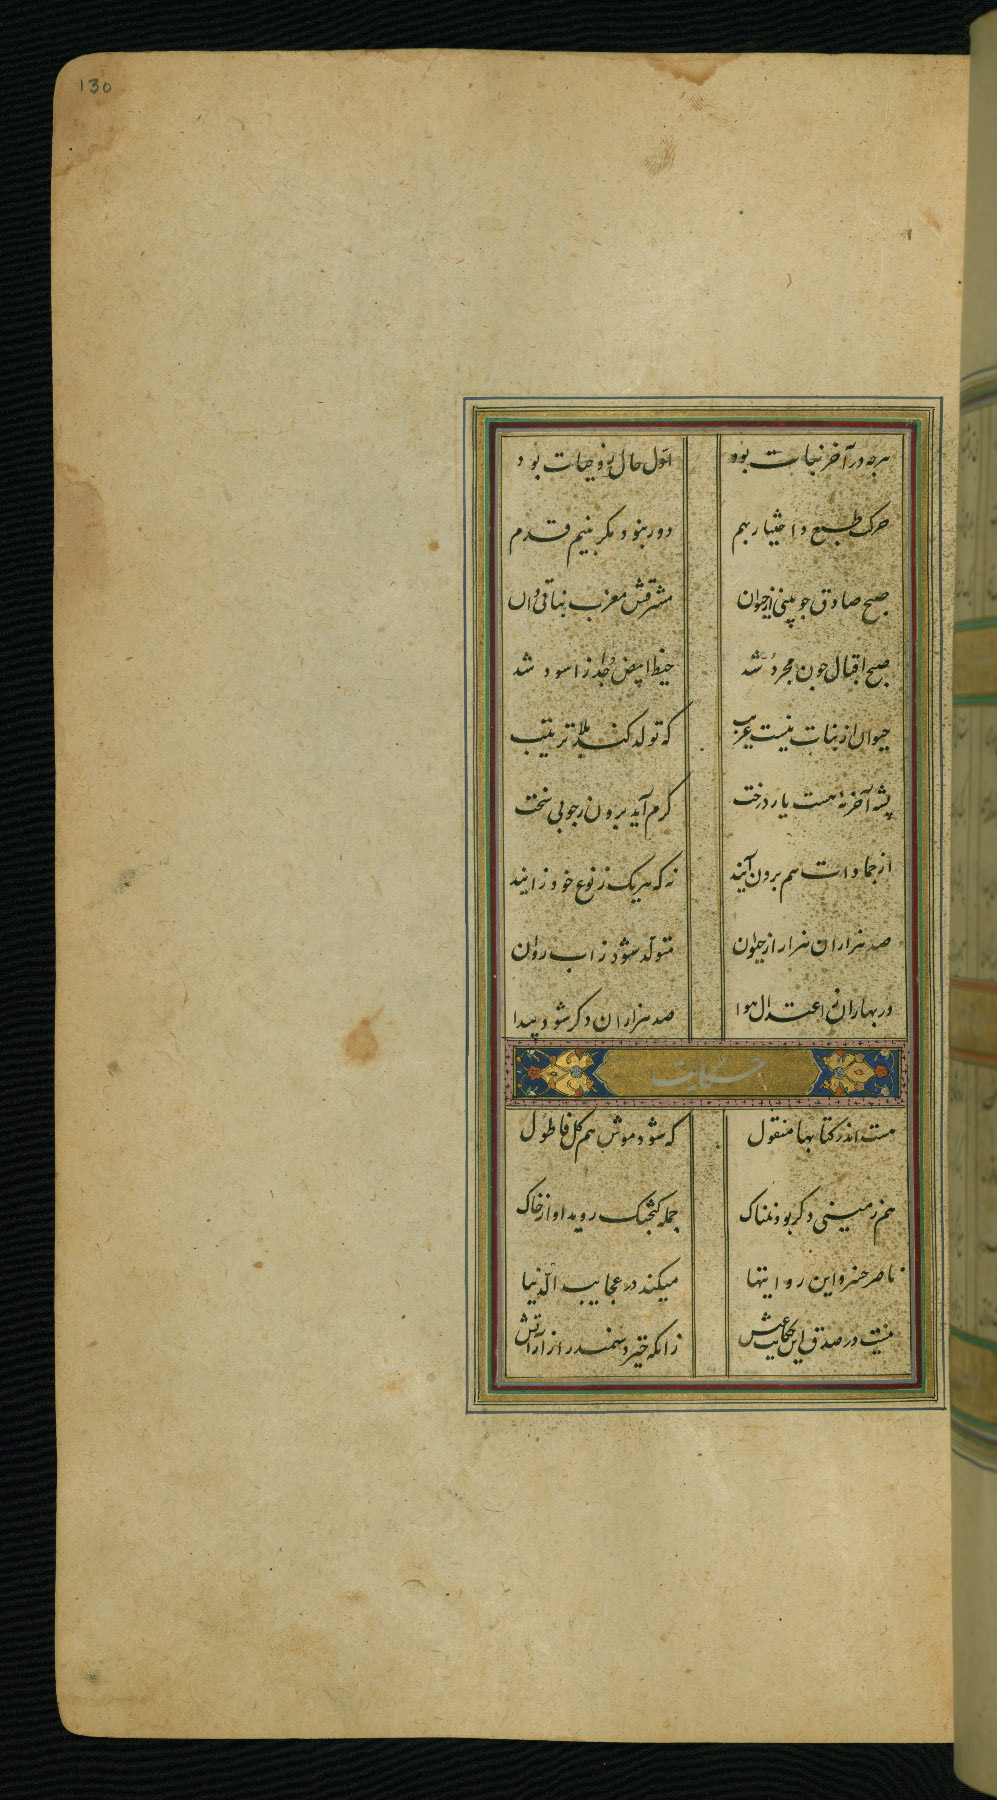 130
هرچه در آخر نبات بود
اول حال ذو حیات بود
حرکت طبع و اختیار بهم
دور بنود مگر بنیم قدم
صبح صادق چو بینی از حیوان
مشرقش مغرب نباتی دان
صبح اقبال چون مجرد شد
خیط ابیض جدا ز اسود شد
حیوان از نبات نیست غریب
که تولد کند بلا ترتیب
پشه آخر نه هست بار درخت
کرم آید برون ز چوبی سخت
از جمادات هم برون آیند
نه که هریک ز نوع خود زایند
صد هزاران هزار از حیوان
متولد شود ز اب روان
در بهاران ز اعتدال هوا
صد هزاران دگر شود پیدا
حکایت
هست اندر کتابها منقول
که شود موش هم گل فاطول
هم زمینی دگر بود نمناک
جمله گنجشک روید او از خاک
ناصر خسرو این روایتها
میکند در عجایب الدنیا
نیست در صدق این حکایت غش
زانکه خیزد سمندر از آتش